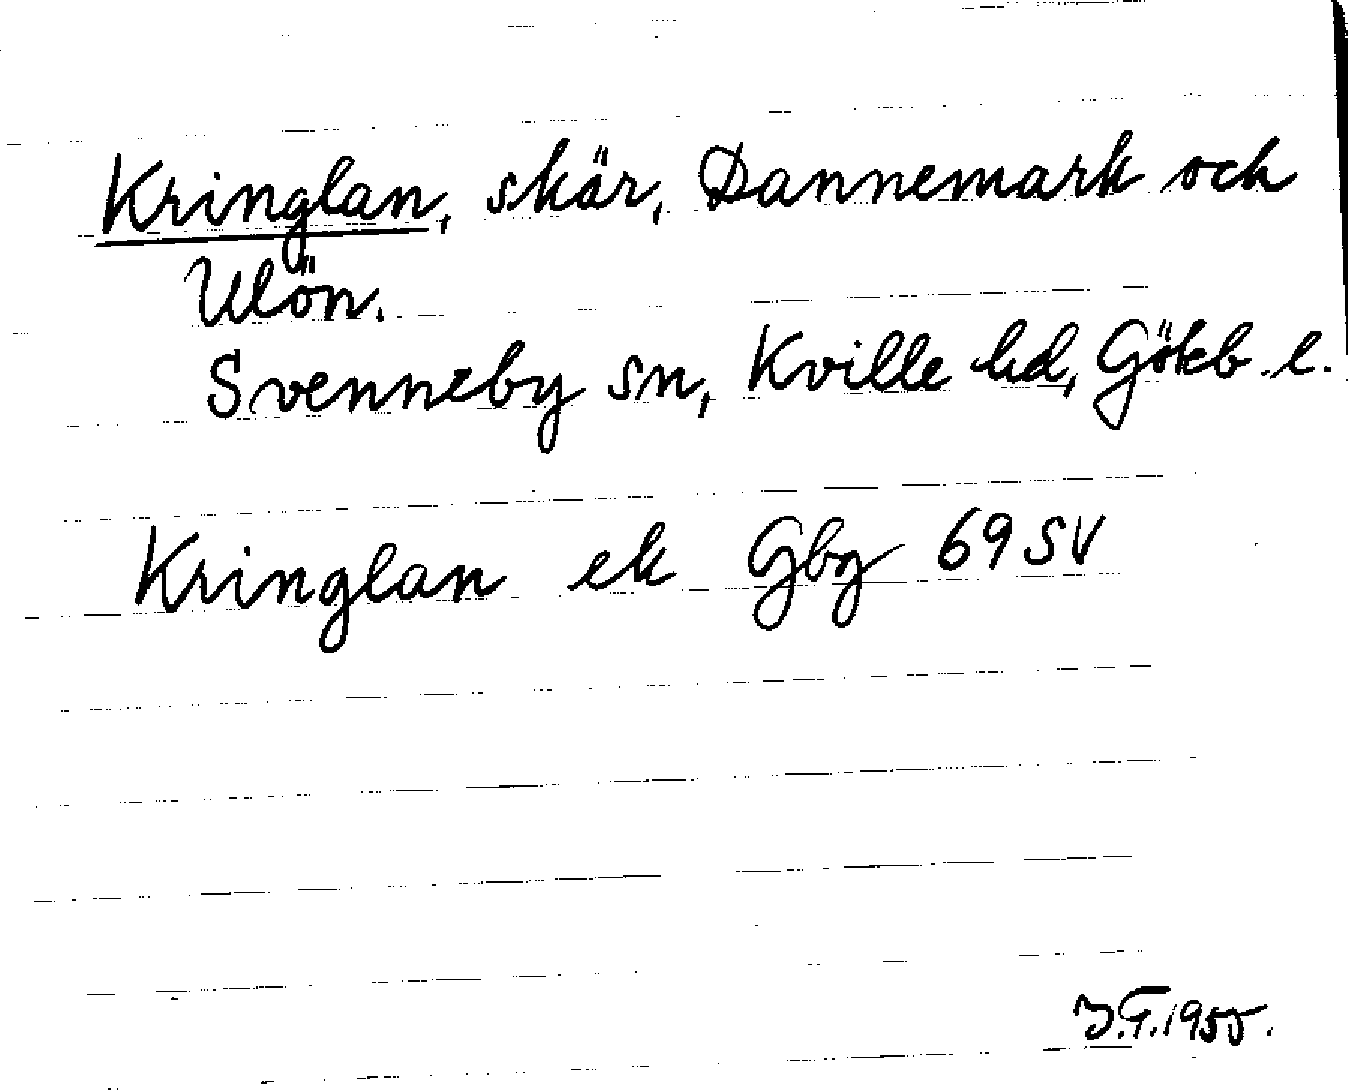 Kringlan, skär, Dannemark och
Ulön.
Svenneby sn, Kville hd, Gökb l.
Kringlan ek Gbg 69 SV
J.G. 1955.